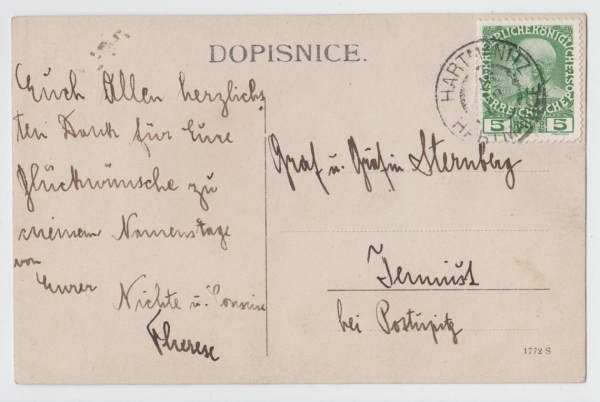 DOPISNICE.
Euch Allen herzlichs
ten Dank für Eure
Glückwünsche zu
meinem Namenstage
von
Eurer
Nichte u. Cousine
Therese
Graf u. Gräfin Sternberg
Jemništ
bei Postupitz
HARTMANITZ
KAISERLICHE KÖNIGLICHE
ÖSTERREICHISCHE POST
5 5
1772 S